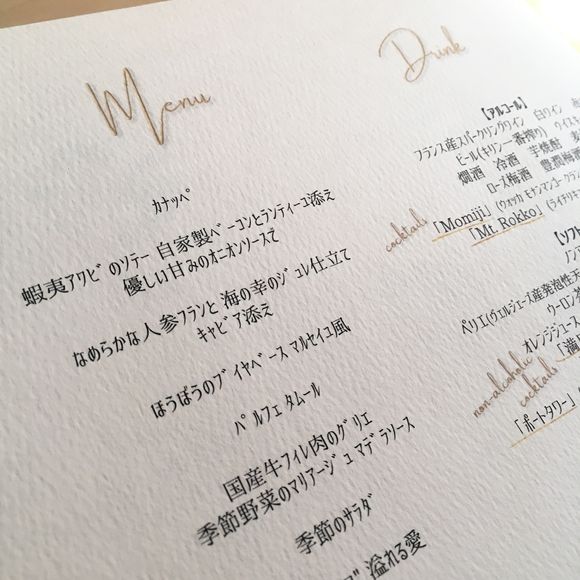 Menu
カナッペ
蝦夷アワビのソテー 自家製ベーコンとランティーユ添え
優しい甘みのオニオンソースで
なめらかな人参フランと 海の幸のジュレ仕立て
キャビア添え
ほうぼうのブイヤベース マルセイユ風
パルフェ タムール
国産牛フィレ肉のグリエ
季節野菜のマリアージュ マデラソース
季節のサラダ
溢れる愛
Drink
【アルコール】
フランス産スパークリングワイン 白ワイン
ビール(キリン一番搾り) ウイスキ
燗酒 冷酒 芋焼酎
ローズ梅酒 豊潤梅酒
cocktails
「Momiji」(ウォッカ モナンマンゴー クラン
「Mt. Rokko」(ライチリキ
【ソフト
ノン
ペリエ(ヴェルジェーズ産発泡性天
ウーロン茶
オレンジジュース
non-alcoholic
cocktails
「満
「ポートタワー」